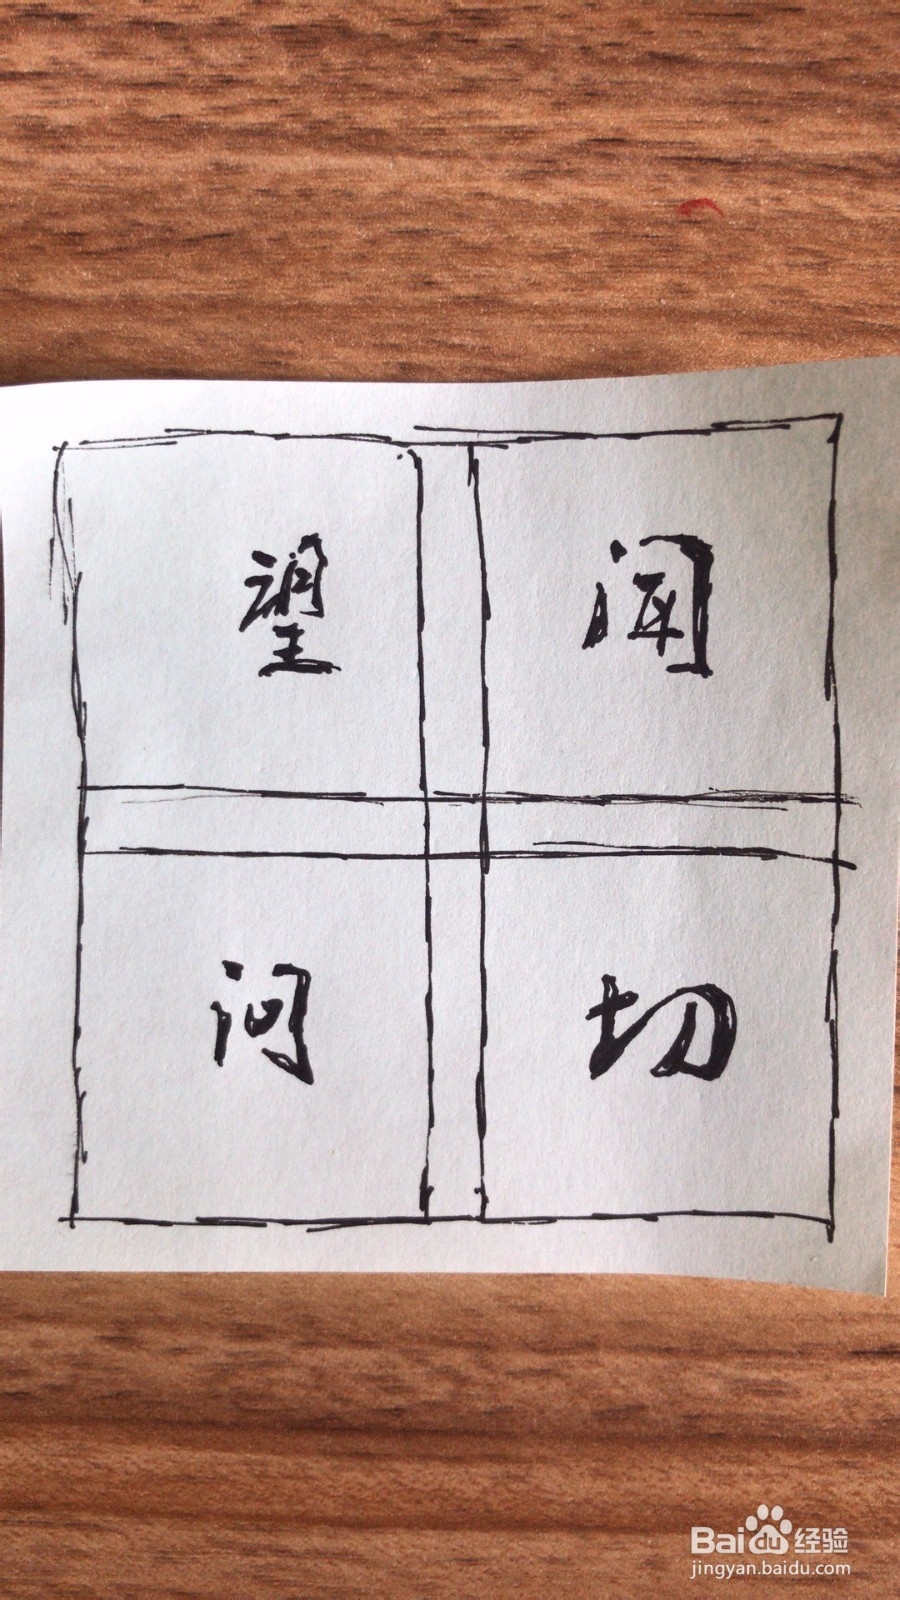 望 闻
问 切
Bai du 经验
jingyan.baidu.com